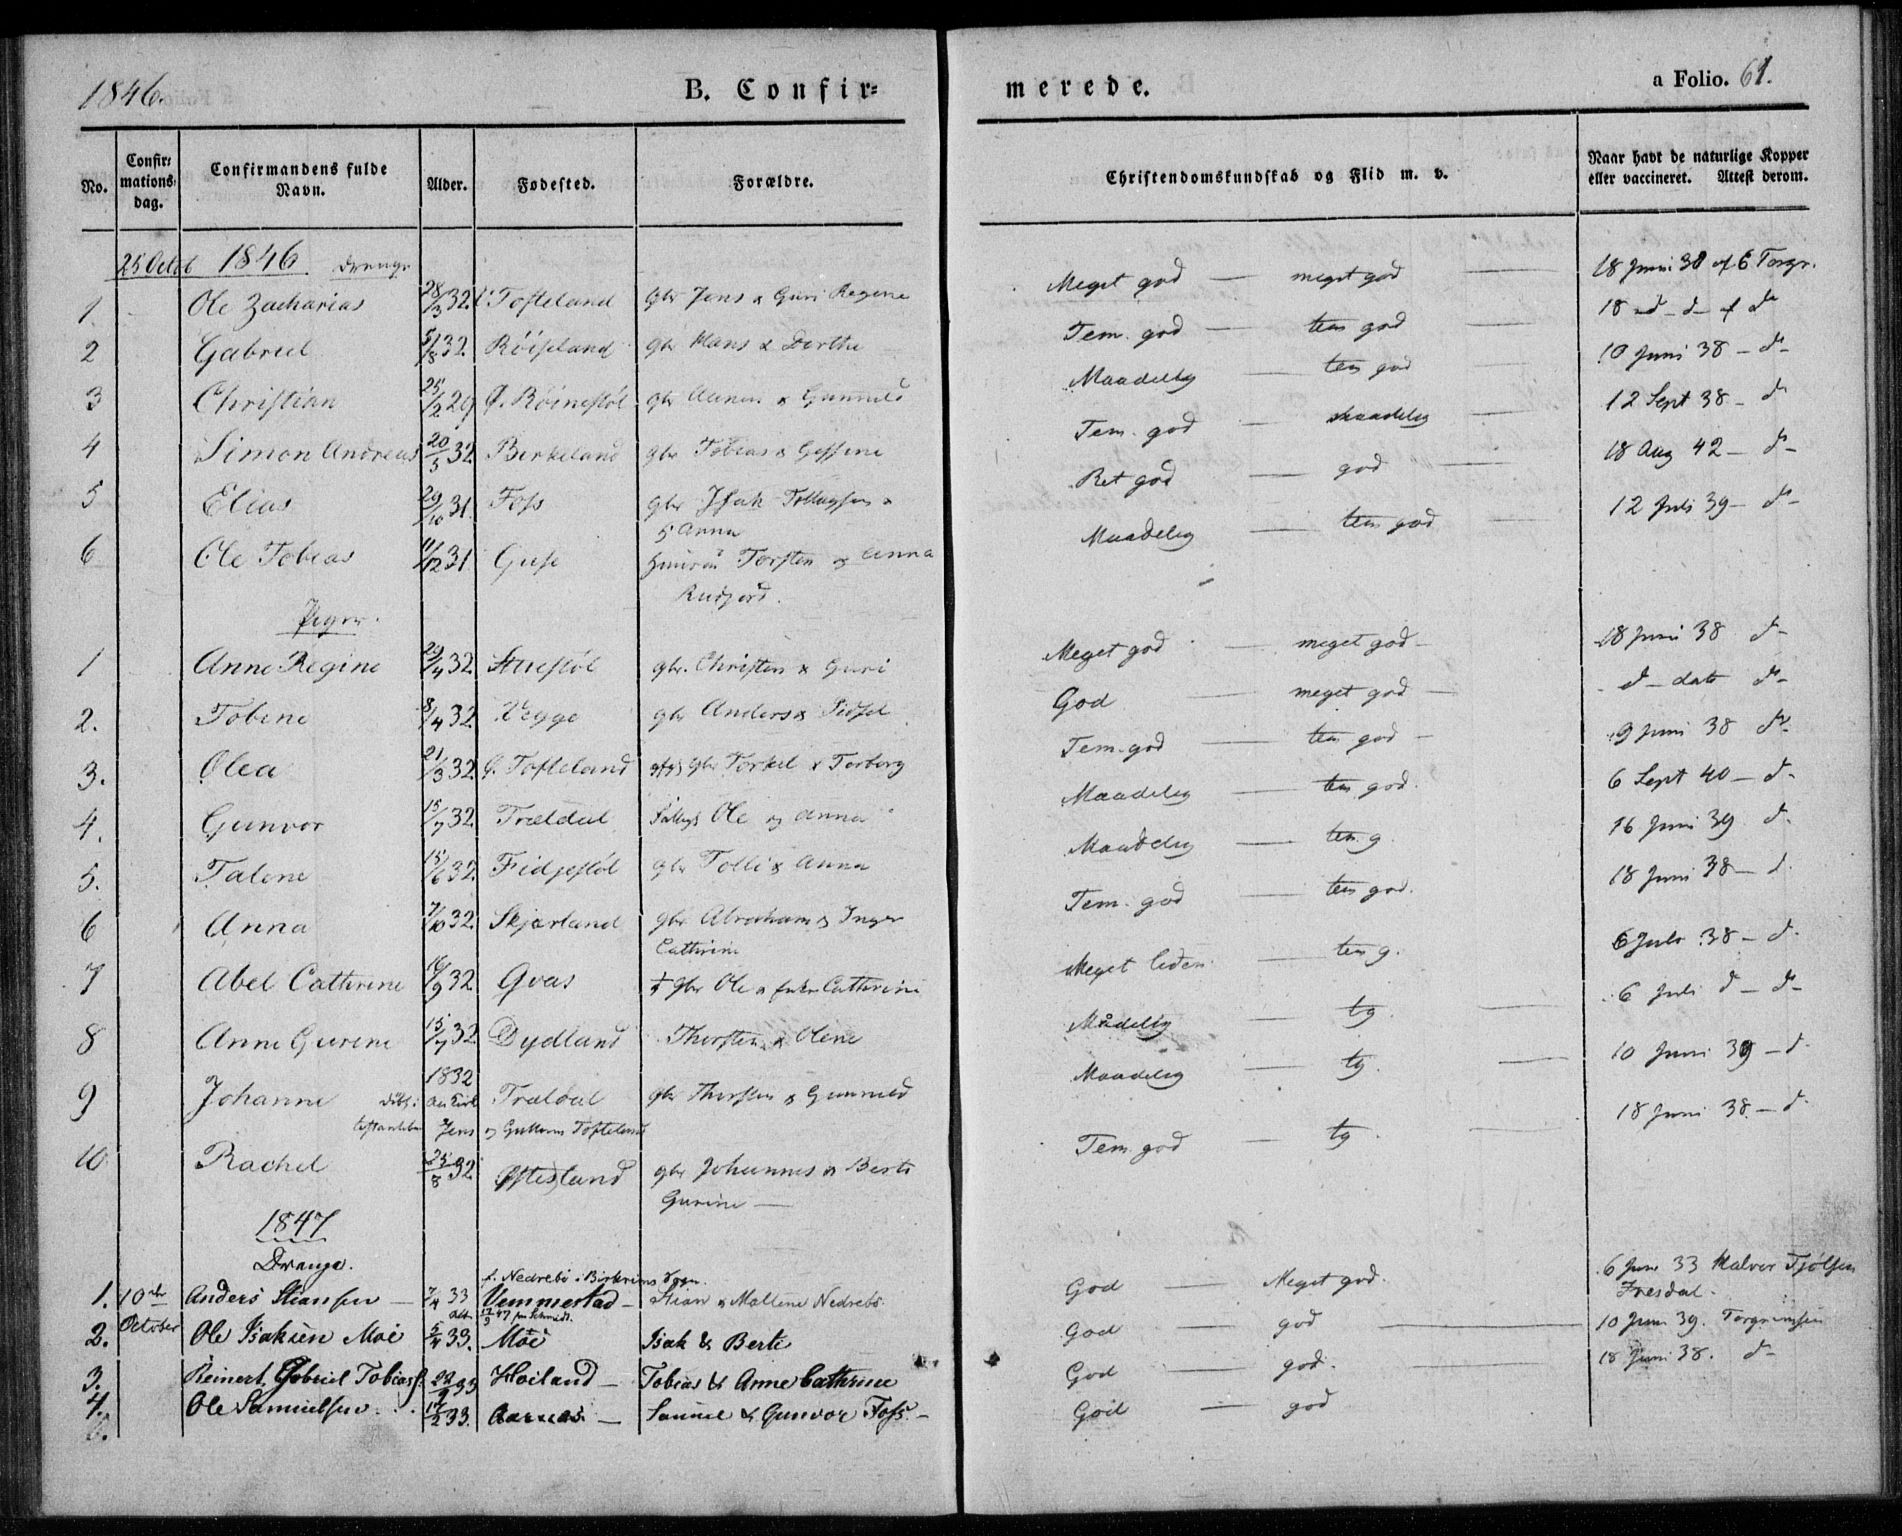 1846.
B. Confir=
merede.
a Folio. 61.
No.
Confir= mations= dag.
Confirmandens fulde Navn.
Alder.
Fødested.
Forældre.
Christendomskundskab og Flid m. v.
Naar havt de naturlige Kopper eller vaccineret. Attest derom.
25 Octob 1846 Drenge
1 Ole Zacharias 28/3 32. Tofteland gbr Jens & Guri Regine Meget god — meget god 18 Juni 38 af E Torgr.
2 Gabriel 5/8 32. Røiseland gbr Hans & Dorthe Tem. god — tem god 18 d d af d
3 Christian 25/2 29 Ø. Røinestøl gbr Aanen & Gunnild Maadelig — tem god 10 Juni 38 — d
4 Simon Andreas 20/5 32. Birkeland gbr Tobias & Gessine Tem. god — maadelig 12 Sept 38 — d
5 Elias 29/10 31. Foss gbr Isak Tollagsen & Anna Ret god — god 18 Aug 42 — d
6 Ole Tobias 11/12 31 Guse Torsten & Anna Rudjord. Maadelig — tem god 12 Juli 39 — d
Piger.
1 Anne Regine 29/4 32 Stuestøl gbr. Christen & Guri Meget god — meget god 18 Juni 38 d
2. Tobine 8/4 32. Vegge gbr Anders & Sidsel God — meget god d dato d
3. Olea 21/3 32. Ø. Tofteland gbr Torkel & Torborg Tem. god — tem god 9 Juni 38 d
4. Gunvor 15/7 32. Trældal Ole og Anna Maadelig — tem god. 6 Sept 40 — d
5. Talene 15/6 32. Fidjestøl gbr Tolli & Anna Maadelig — tem g. 16 Juni 39 d
6 Anna 7/10 32. Skjærland gbr Abraham & Inger Cathrine Tem. god — tem god. 18 Juni 38 — d
7 Abel Cathrine 16/9 32 Gvas † gbr Ole & enke Cathrine Meget liden — tem g. 6 Juli 38 — d
8 Anne Gurine 15/7 32. Dydland Thorsten & Olene Mådelig — tg. 6 Juli d — d
9 Johanne 1832 Trældal gbr Thorsten & Gunnild Maadelig — tg. 10 Juni 39 — d
Jens og Guttorm Tofteland
10 Rachel 25/8 32 Øftesland gbr Johannes & Berte Gurine — Tem. god — tg. 18 Juni 38 — d
1847
Drenge.
f. Nedrebö i Birkrems Sogn.
1. 10de Anders Stiansen — 7/4 33 Vemmestad — Stian & Maltene Nedrebö. God — Meget god. 6 Juni 33 Halvor Tjölsen Iresdal.
2. October Ole Isaksen Moi 5/4 33. Moi Isak & Berte God — god 10 Juni 39. Torgrimsen
3. Reinert Gabriel Tobias s. 22/9 33 Höiland — Tobias & Anne Cathrine God — god. 18 Juni 38. d
4. Ole Samuelsen 17/2 33. Aarnæs — Samuel & Gunvor Foss — God — god